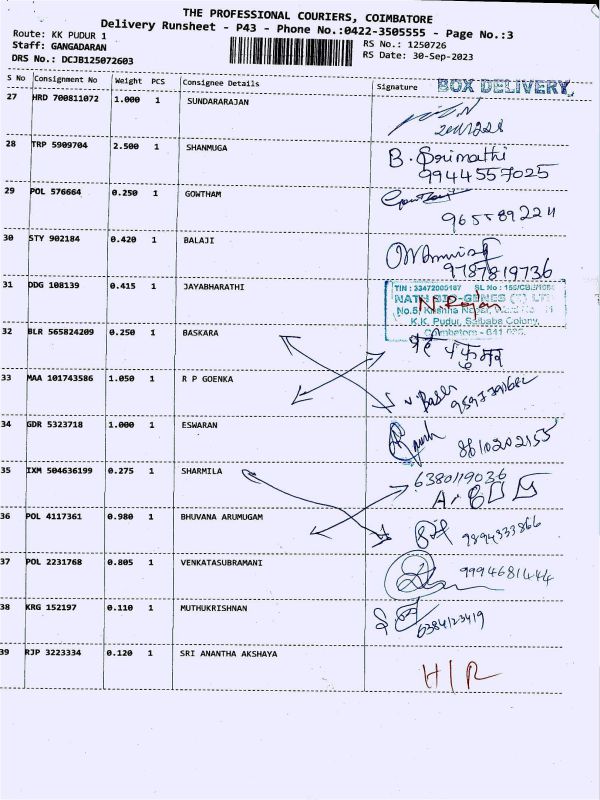 THE PROFESSIONAL COURIERS, COIMBATORE
Delivery Runsheet - P43 - Phone No.:0422-3505555 - Page No.:3
Route: KK PUDUR 1
Staff: GANGADARAN
RS No.: 1250726
DRS No.: DCJB125072603
RS Date: 30-Sep-2023
S No Consignment No Weight PCS Consignee Details Signature BOX DELIVERY
27 HRD 700811072 1.000 1 SUNDARARAJAN
28 TRP 5909704 2.500 1 SHANMUGA B. Srimathi
9944557025
29 POL 576664 0.250 1 GOWTHAM
9655892211
30 STY 902184 0.420 1 BALAJI
9787819736
31 DDG 108139 0.415 1 JAYABHARATHI
TIN : 33472005187 SL No :
N. Rajan
K.K. Pudur, Saibaba Colony,
Coimbatore - 641
32 BLR 565824209 0.250 1 BASKARA
33 MAA 101743586 1.050 1 R P GOENKA
34 GDR 5323718 1.000 1 ESWARAN
8610202155
35 IXM 504636199 0.275 1 SHARMILA 6380119036
36 POL 4117361 0.980 1 BHUVANA ARUMUGAM 9894333866
37 POL 2231768 0.805 1 VENKATASUBRAMANI 9994681444
38 KRG 152197 0.110 1 MUTHUKRISHNAN
6384123419
39 RJP 3223334 0.120 1 SRI ANANTHA AKSHAYA H/R